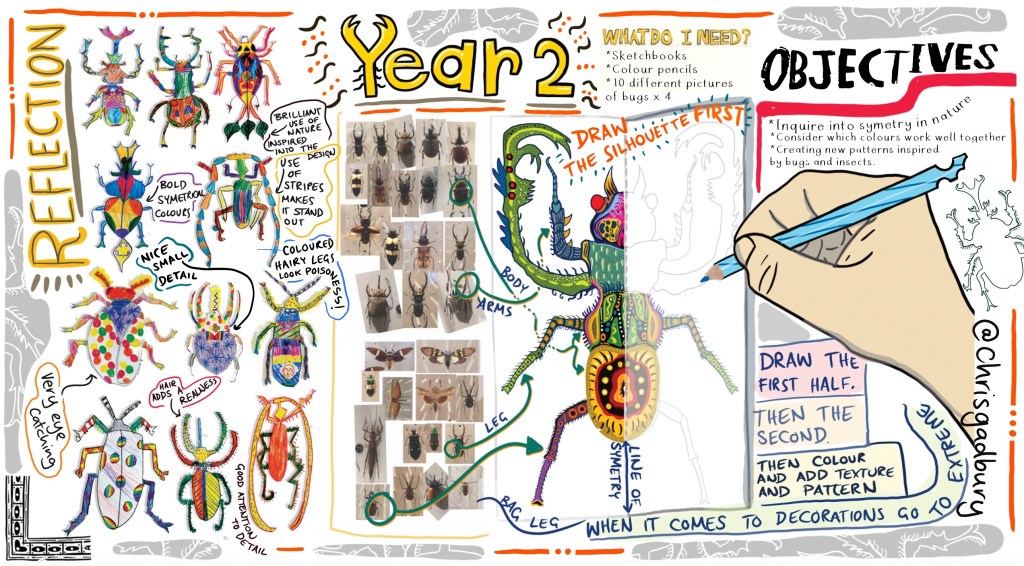 REFLECTION
BRILLIANT
USE OF
NATURE
INSPIRED
INTO THE DESIGN
USE
OF
STRIPES
MAKES
IT STAND
OUT
BOLD
SYMETRICAL
COLOURS
NICE
SMALL
DETAIL
COLOURED
HAIRY LEGS
LOOK POISONESS!
Very eye
Catching
HAIR
ADDS A
REALNESS
GOOD ATTENTION
TO DETAIL
Year 2
WHAT DO I NEED?
*Sketchbooks
*Colour pencils
*10 different pictures
of bugs x 4
DRAW
THE SILHOUETTE FIRST
BODY
ARMS
LEG
BAG LEG
LINE OF
SYMETRY
OBJECTIVES
*Inquire into symetry in nature
*Consider which colours work well together
*Creating new patterns inspired
by bugs and insects.
DRAW THE
FIRST HALF.
THEN THE
SECOND.
THEN COLOUR
AND ADD TEXTURE
AND PATTERN
WHEN IT COMES TO DECORATIONS GO TO EXTREME
@chrisgadbury